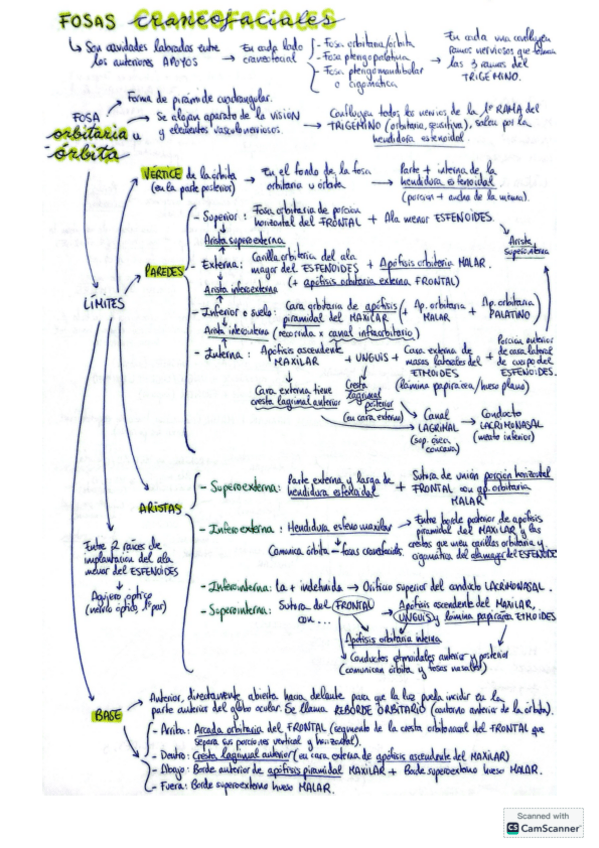 FOSAS craneofaciales
↳ Son cavidades labradas entre los anteriores APOYOS → En cada lado craneofacial
- Fosa orbitaria/órbita
- Fosa pterigopalatina
- Fosa pterigomandibular o cigomática
→ En cada una confluyen ramos nerviosos que forman las 3 ramas del TRIGÉMINO.
FOSA orbitaria u órbita
→ Forma de pirámide cuadrangular.
→ Se alojan aparato de la VISIÓN y elementos vasculonerviosos.
→ Confluyen todos los nervios de la 1ª RAMA del TRIGÉMINO (orbitaria, sensitiva), salen por la hendidura esfenoidal.
LÍMITES
VÉRTICE de la órbita (en la parte posterior) → En el fondo de la fosa orbitaria u órbita → Parte + interna de la hendidura esfenoidal (porción + ancha de la misma).
PAREDES
- Superior: Fosa orbitaria de porción horizontal del FRONTAL + Ala menor ESFENOIDES.
Arista superoexterna
Arista superointerna
- Externa: Carilla orbitaria del ala mayor del ESFENOIDES + Apófisis orbitaria MALAR.
(+ apófisis orbitaria externa FRONTAL)
Arista inferoexterna
- Inferior o suelo: Cara orbitaria de apófisis piramidal del MAXILAR + Ap. orbitaria MALAR + Ap. orbitaria PALATINO
Arista inferointerna (recorrida x canal infraorbitario)
- Interna: Apófisis ascendente MAXILAR + UNGUIS + Cara externa de masas laterales del ETMOIDES (lámina papirácea/hueso plano) + Porción anterior de cara lateral de cuerpo del ESFENOIDES.
Cara externa tiene cresta lagrimal anterior
Cresta lagrimal posterior (en cara externa)
Canal LAGRIMAL
→ Conducto LACRIMONASAL (meato inferior)
ARISTAS
- Superoexterna: Parte externa y larga de hendidura esfenoidal + Sutura de unión porción horizontal FRONTAL con ap. orbitaria MALAR
- Inferoexterna: Hendidura esfenomaxilar → Entre borde posterior de apófisis piramidal del MAXILAR y las crestas que unen carillas orbitaria y cigomática del ala mayor del ESFENOIDES
Comunica órbita - fosas craneofaciales.
- Inferointerna: La + indefinida → Orificio superior del conducto LACRIMONASAL.
- Superointerna: Sutura del FRONTAL con ... → Apófisis ascendente del MAXILAR, UNGUIS y lámina papirácea ETMOIDES
Apófisis orbitaria interna
→ Conductos etmoidales anterior y posterior (comunican órbita y fosas nasales)
Entre 2 raíces de implantación del ala menor del ESFENOIDES
Agujero óptico (nervio óptico, IIº par)
BASE
→ Anterior, directamente abierta hacia delante para que la luz pueda incidir en la parte anterior del globo ocular. Se llama REBORDE ORBITARIO (contorno anterior de la órbita).
- Arriba: Arcada orbitaria del FRONTAL (segmento de la cresta orbitonasal del FRONTAL que separa sus porciones vertical y horizontal).
- Dentro: Cresta lagrimal anterior (en cara externa de apófisis ascendente del MAXILAR)
- Abajo: Borde anterior de apófisis piramidal MAXILAR + Borde superoexterno hueso MALAR.
- Fuera: Borde superoexterno hueso MALAR.
Scanned with
CS CamScanner